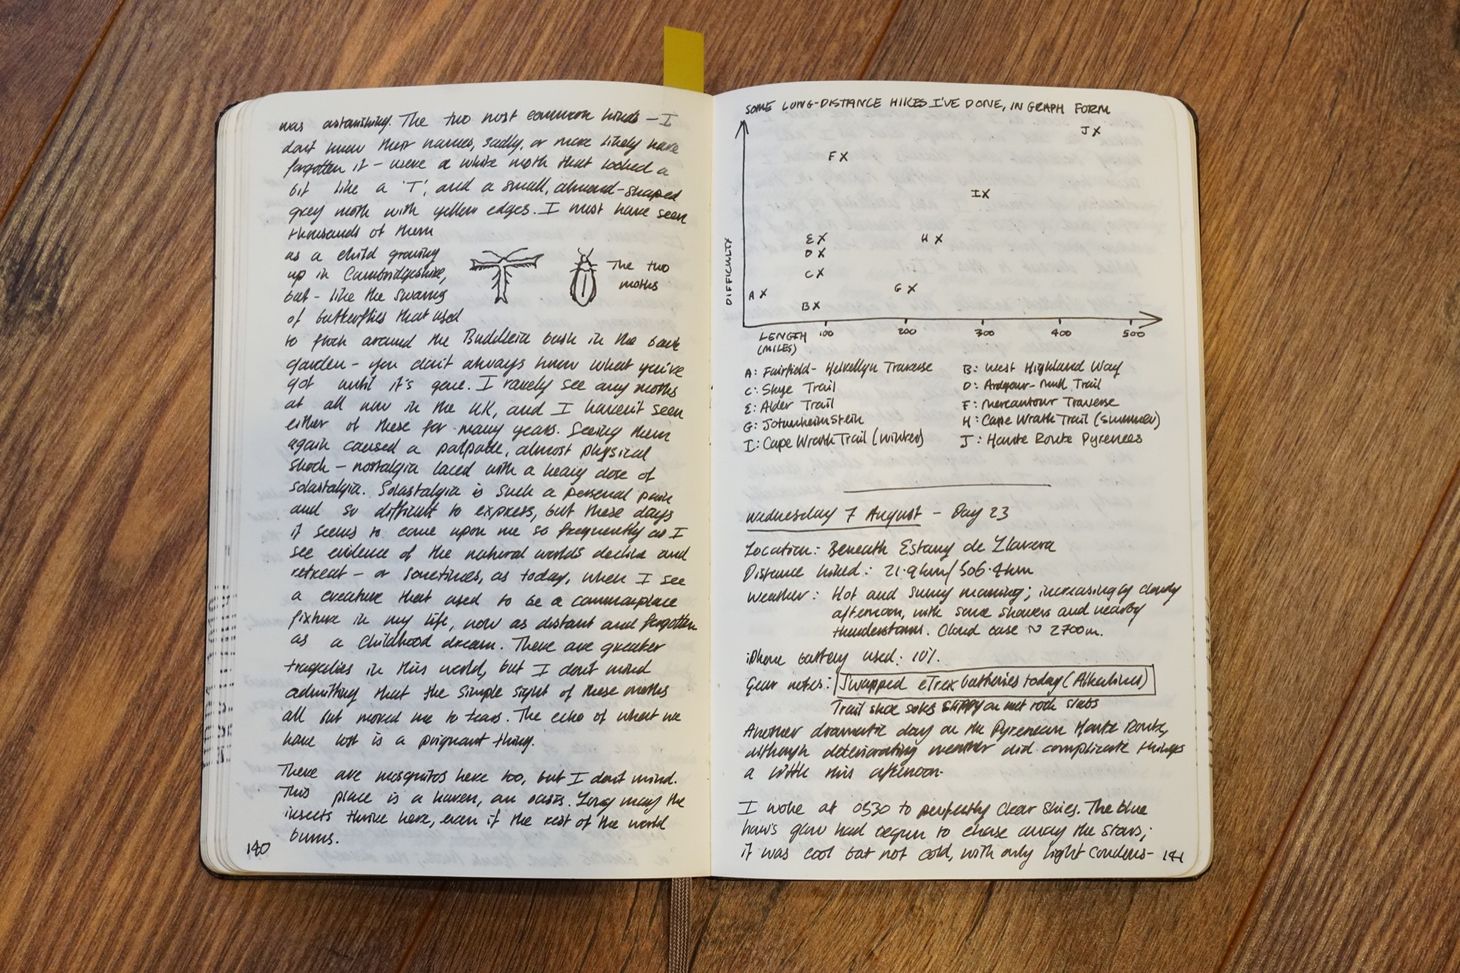 was astonishing. The two most common kinds – I
don't know their names, sadly, or more likely have
forgotten it – were a white moth that looked a
bit like a 'T', and a small, almond-shaped
grey moth with yellow edges. I must have seen
thousands of them
as a child growing
up in Cambridgeshire,
but – like the swarms
of butterflies that used
The two
moths
to flock around the Buddleia bush in the back
garden – you don't always know what you've
got until it's gone. I rarely see any moths
at all now in the UK, and I haven't seen
either of these for many years. Seeing them
again caused a palpable, almost physical
shock – nostalgia laced with a heavy dose of
solastalgia. Solastalgia is such a personal pain
and so difficult to express, but these days
it seems to come upon me so frequently as I
see evidence of the natural worlds decline and
retreat – or sometimes, as today, when I see
a creature that used to be a commonplace
fixture in my life, now as distant and forgotten
as a childhood dream. There are greater
tragedies in this world, but I don't mind
admitting that the simple sight of these moths
all but moved me to tears. The echo of what we
have lost is a poignant thing.
There are mosquitos here too, but I don't mind.
This place is a haven, an oasis. Long may the
insects thrive here, even if the rest of the world
burns.
140
SOME LONG-DISTANCE HIKES I'VE DONE, IN GRAPH FORM
J X
F X
I X
E X
H X
D X
C X
G X
A X
B X
DIFFICULTY
LENGTH
(MILES)
100 200 300 400 500
A: Fairfield-Helvellyn Traverse
B: West Highland Way
C: Skye Trail
D: Ardgour-Mull Trail
E: Alder Trail
F: Mercantour Traverse
G: Jotunheimstein
H: Cape Wrath Trail (summer)
I: Cape Wrath Trail (winter)
J: Haute Route Pyrenees
Wednesday 7 August – Day 23
Location: Beneath Estany de Llavera
Distance hiked: 21.9km/506.4km
Weather: Hot and sunny morning; increasingly cloudy
afternoon, with some showers and nearby
thunderstorms. Cloud base ~ 2700m.
iPhone battery used: 10%.
Gear notes: Swapped eTrex batteries today (Alkalines)
Trail shoe soles slippy on wet rock slabs
Another dramatic day on the Pyrenean Haute Route,
although deteriorating weather did complicate things
a little this afternoon.
I woke at 0530 to perfectly clear skies. The blue
hour's glow had begun to chase away the stars;
it was cool but not cold, with only light condens-
141